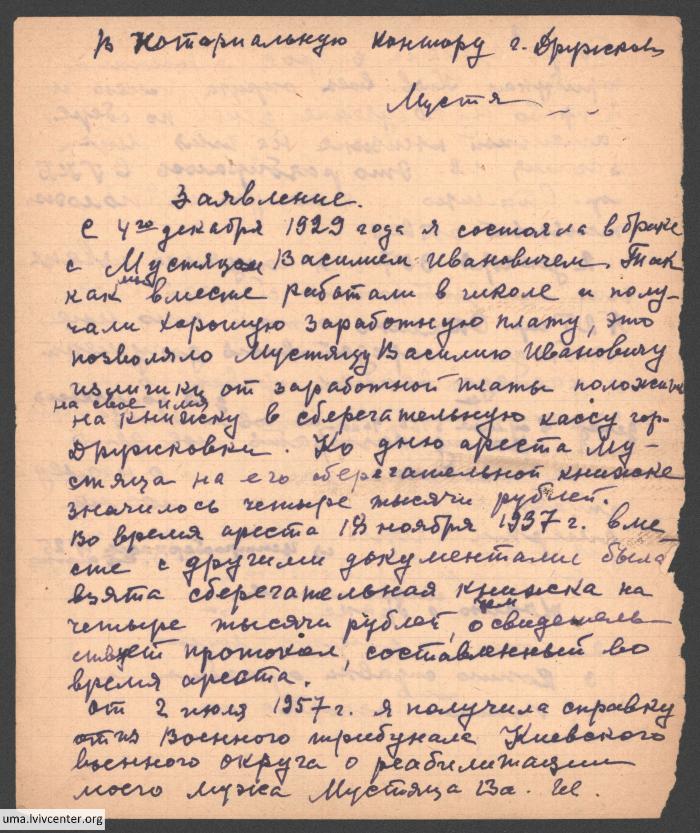 В нотариальную контору г. Дружковки
Мустя
Заявление.
С 4го декабря 1929 года я состояла в браке
с Мустяцем Василием Ивановичем. Так
как мы вместе работали в школе и полу-
чали хорошую заработную плату, это
позволяло Мустяцу Василию Ивановичу
излишки от заработной платы положить
на свое имя
на книжку в сберегательную кассу гор-
Дружковки. Ко дню ареста Му-
стяца на его сберегательной книжке
значилось четыре тысячи рублей.
Во время ареста 18 ноября 1937 г. вме-
сте с другими документами была
взята сберегательная книжка на
четыре тысячи рублей, о чем свидетель-
ствует протокол, составленный во
время ареста.
от 2 июля 1957 г. я получила справку
из Военного трибунала Киевского
военного округа о реабилитации
моего мужа Мустяца Ва. Ив.
uma.lvivcenter.org